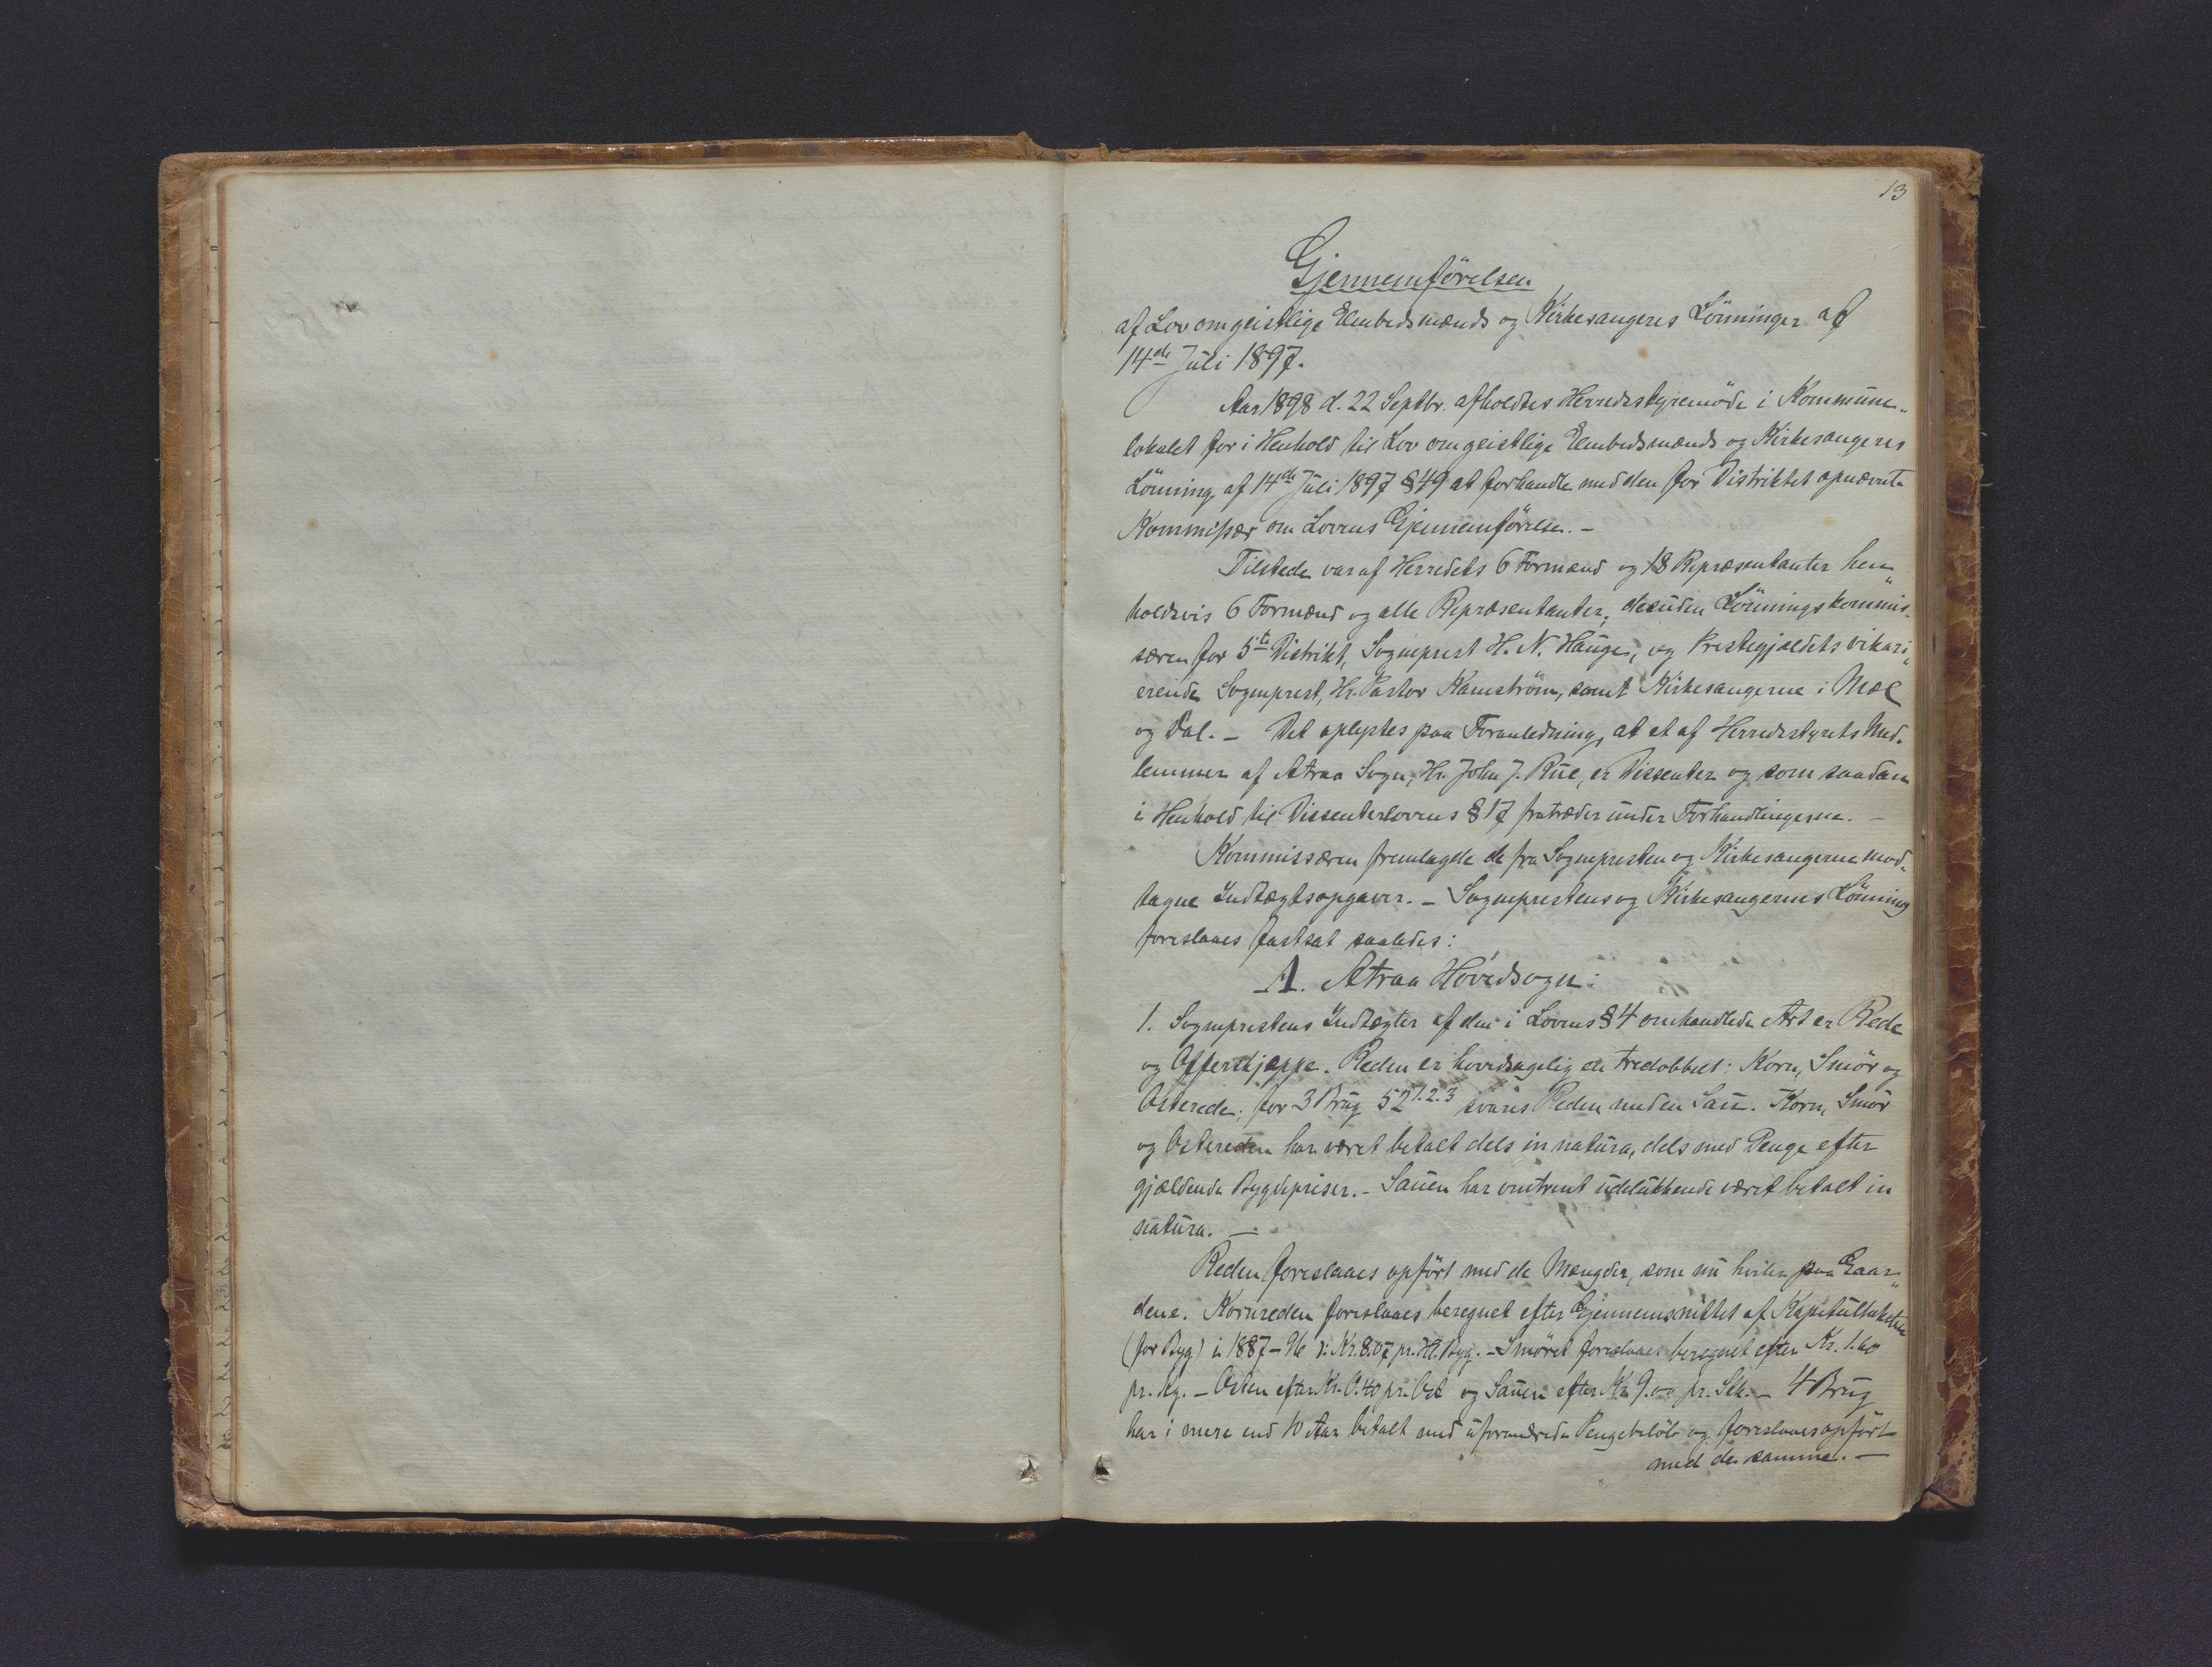 13
Gjennemförelsen
af Lov om geistlige Embedsmænds og Kirkesangeres Lönninger af
14de Juli 1897.
Aar 1898 d. 22 Septbr. afholdtes Herredsstyremöde i Kommune-
lokalet for i Henhold til Lov om geistlige Embedsmænds og Kirkesangeres
Lönning af 14de Juli 1897 § 49 at forhandle med den for Distriktet opnævnte
Kommissær om Lovens Gjennemförelse. -
Tilstede var af Herredets 6 Formænd og 18 Repræsentanter hen-
holdsvis 6 Formænd og alle Repræsentanter, desuden Lönningskommis-
særen for 5te Distrikt, Sogneprest H. N. Hauge, og Prestegjældets vikari-
erende Sogneprest, Hr. Pastor Kamström, samt Kirkesangerne i Mæl
og Dal. - Det oplystes paa Foranledning, at et af Herredsstyrets Med-
lemmer af Atraa Sogn, Hr. John J. Rue, er Dissenter og som saadan
i Henhold til Dissenterlovens § 17 fratræder under Forhandlingerne. -
Kommissæren fremlagde de fra Sognepresten og Kirkesangerne mod-
tagne Indtægtsopgaver. - Sogneprestens og Kirkesangernes Lönning
foreslaaes fastsat saaledes:
A. Atraa Hovedsogn:
1. Sogneprestens Indtægter af den i Lovens § 4 omhandlede Art er Rede
og Offerskjæppe. Reden er hovedsagelig de tredobbelt: Korn, Smör og
Osterede. for 3 Brug 52 1.2.3 svares Reden med en Sau. Korn, Smör
og Ostereden har været betalt dels in natura, dels med Penge efter
gjældende Bygdepriser. - Sauen har omtrent udelukkende været betalt in
natura. -
Reden foreslaaes opfört med de Mængder, som nu hviler paa Gaar-
dene. Kornreden foreslaaes beregnet efter Gjennemsnittet af Kapitultaksten
(for Byg) i 1887-96 ɔ: Kr. 8.07 pr. Hl. Byg. - Smöret foreslaaes beregnet efter Kr. 1.60
pr. kg. - Osten efter Kr. 0.40 pr. Ost og Sauen efter Kr. 9.00 pr. Stk. - 4 Brug
har i mere end 10 Aar betalt med uforandrede Pengebelöb og foreslaaes opfört
med de samme. -